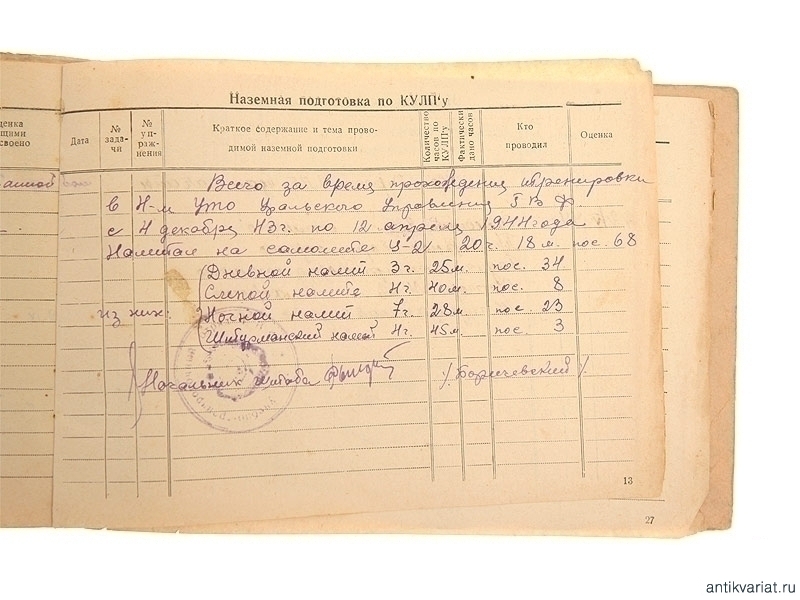 Наземная подготовка по КУЛП'у
ценка
щими
своено
Дата
№
зада-
чи
№
уп-
раж-
нения
Краткое содержание и тема прово-
димой наземной подготовки
Количество
часов по
КУЛП'у
Фактически
дано часов
Кто
проводил
Оценка
Всего за время прохождения тренировки
в 4-м УТО Уральского Управления ГВФ.
с 4 декабря 43г. по 12 апреля 1944 года
Налитал на самолете У-2 20 ч. 18 м. пос. 68
Дневной налит 3 г. 25 м. пос. 34
Слепой налите 4 г. 40 м. пос. 8
из них: Ночной налит 7 г. 28 м. пос. 23
Штурманский налит 4 г. 45 м. пос. 3
Начальник штаба /Боричевский/
13
27
antikvariat.ru